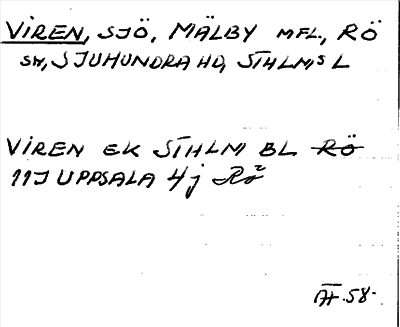 VIREN, SJÖ, MÄLBY MFL, RÖ
SN, SJUHUNDRA HD, STHLMS L
VIREN EK STHLM BL RÖ
11J UPPSALA 4j Rö²
AF.58.